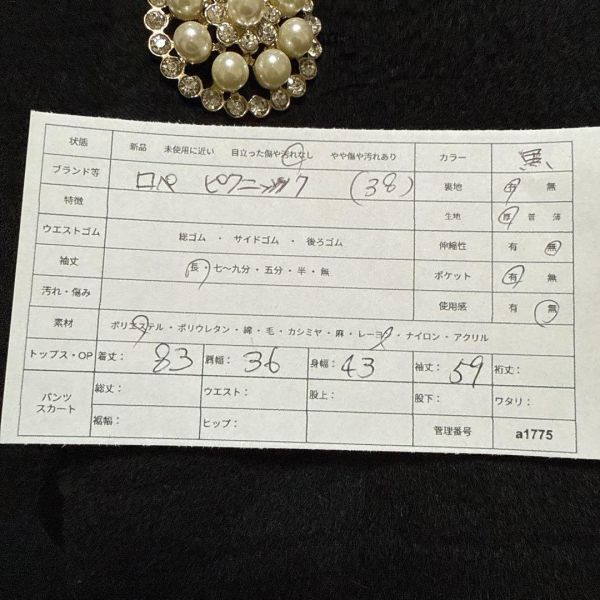 状態 新品 未使用に近い 目立った傷や汚れなし やや傷や汚れあり カラー 黒
ブランド等 ロペ ピクニック (38) 裏地 有 無
特徴 生地 厚 普 薄
ウエストゴム 総ゴム ・ サイドゴム ・ 後ろゴム 伸縮性 有 無
袖丈 長・七〜九分・五分・半・無 ポケット 有 無
汚れ・傷み 使用感 有 無
素材 ポリエステル・ポリウレタン・綿・毛・カシミヤ・麻・レーヨン・ナイロン・アクリル
トップス・OP 着丈: 83 肩幅: 36 身幅: 43 袖丈: 59 裄丈:
パンツ スカート 総丈: ウエスト: 股上: 股下: ワタリ:
裾幅: ヒップ: 管理番号 a1775